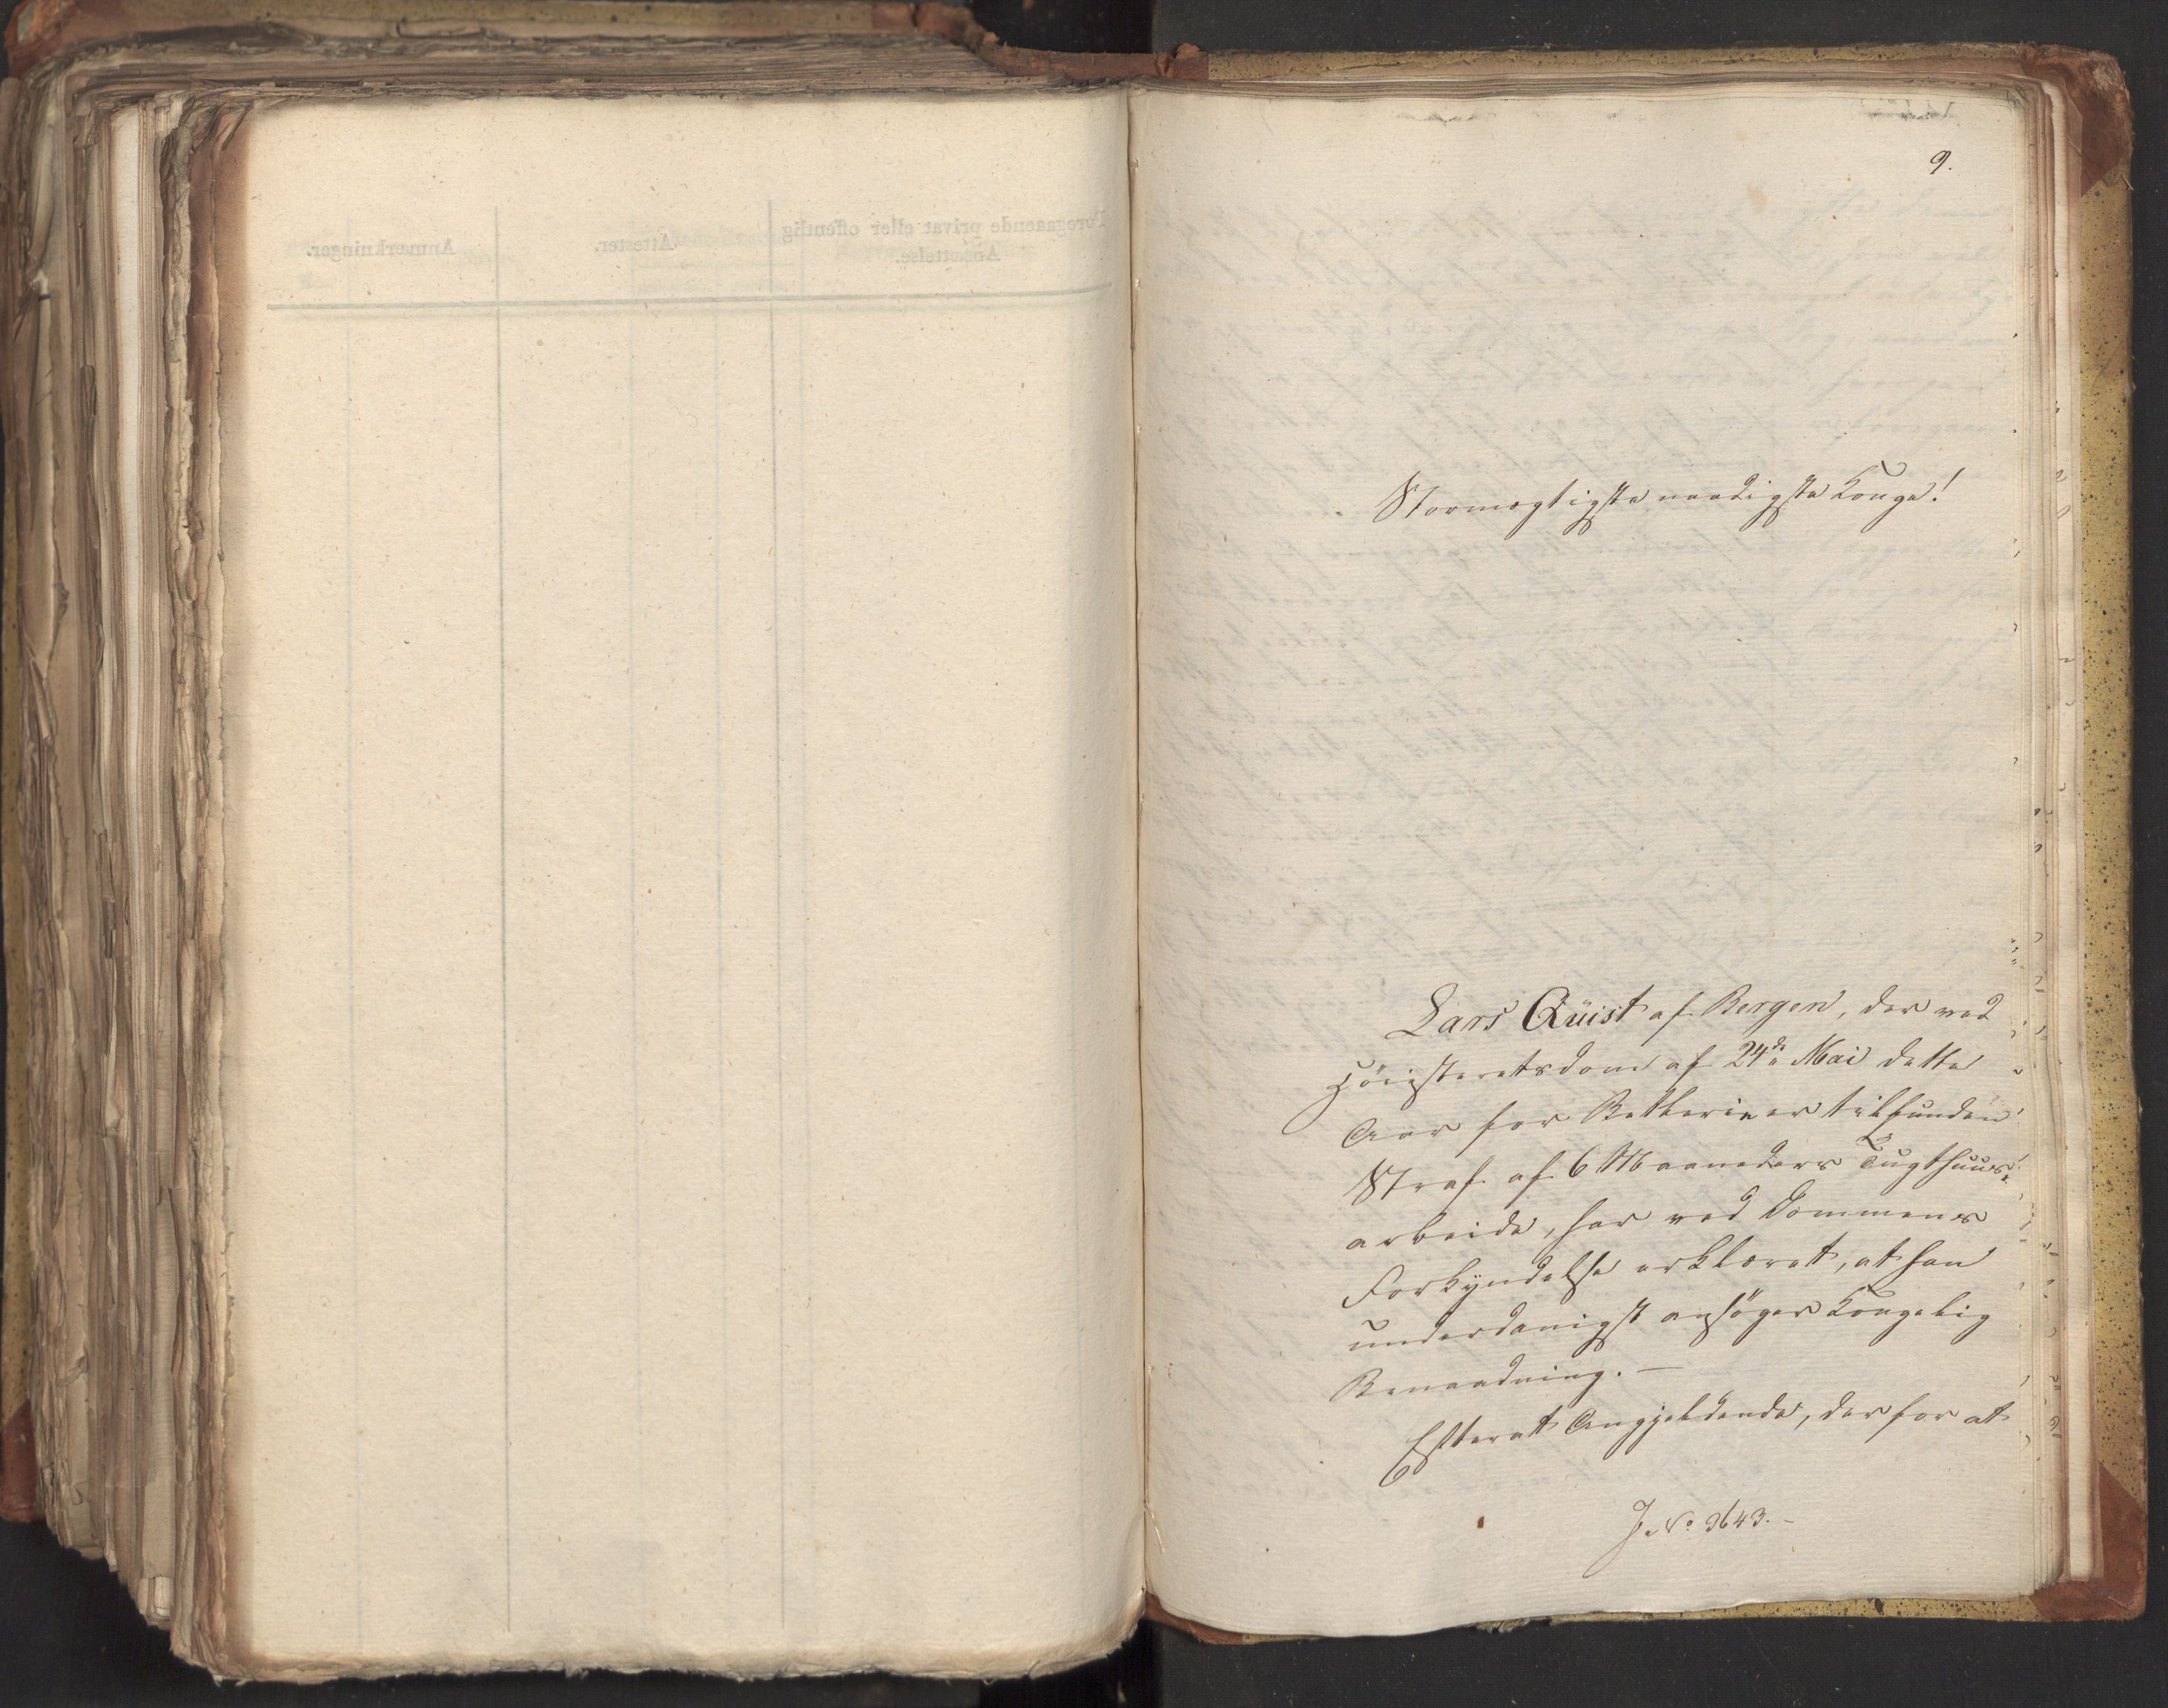 9.
Stormægtigste naadigste Konge!
Lars Qüist af Bergen, der ved
Höiesteretsdom af 24de Mai dette
Aar for Betlerie er tilfunden
Straf af 6 Maaneders Tugthuus-
arbeide, har ved Dommens
Forkyndelse erklæret, at han
underdanigst ansöger Kongelig
Benaadning. —
Efterat Angjeldende, der for at
J. No 3643. -